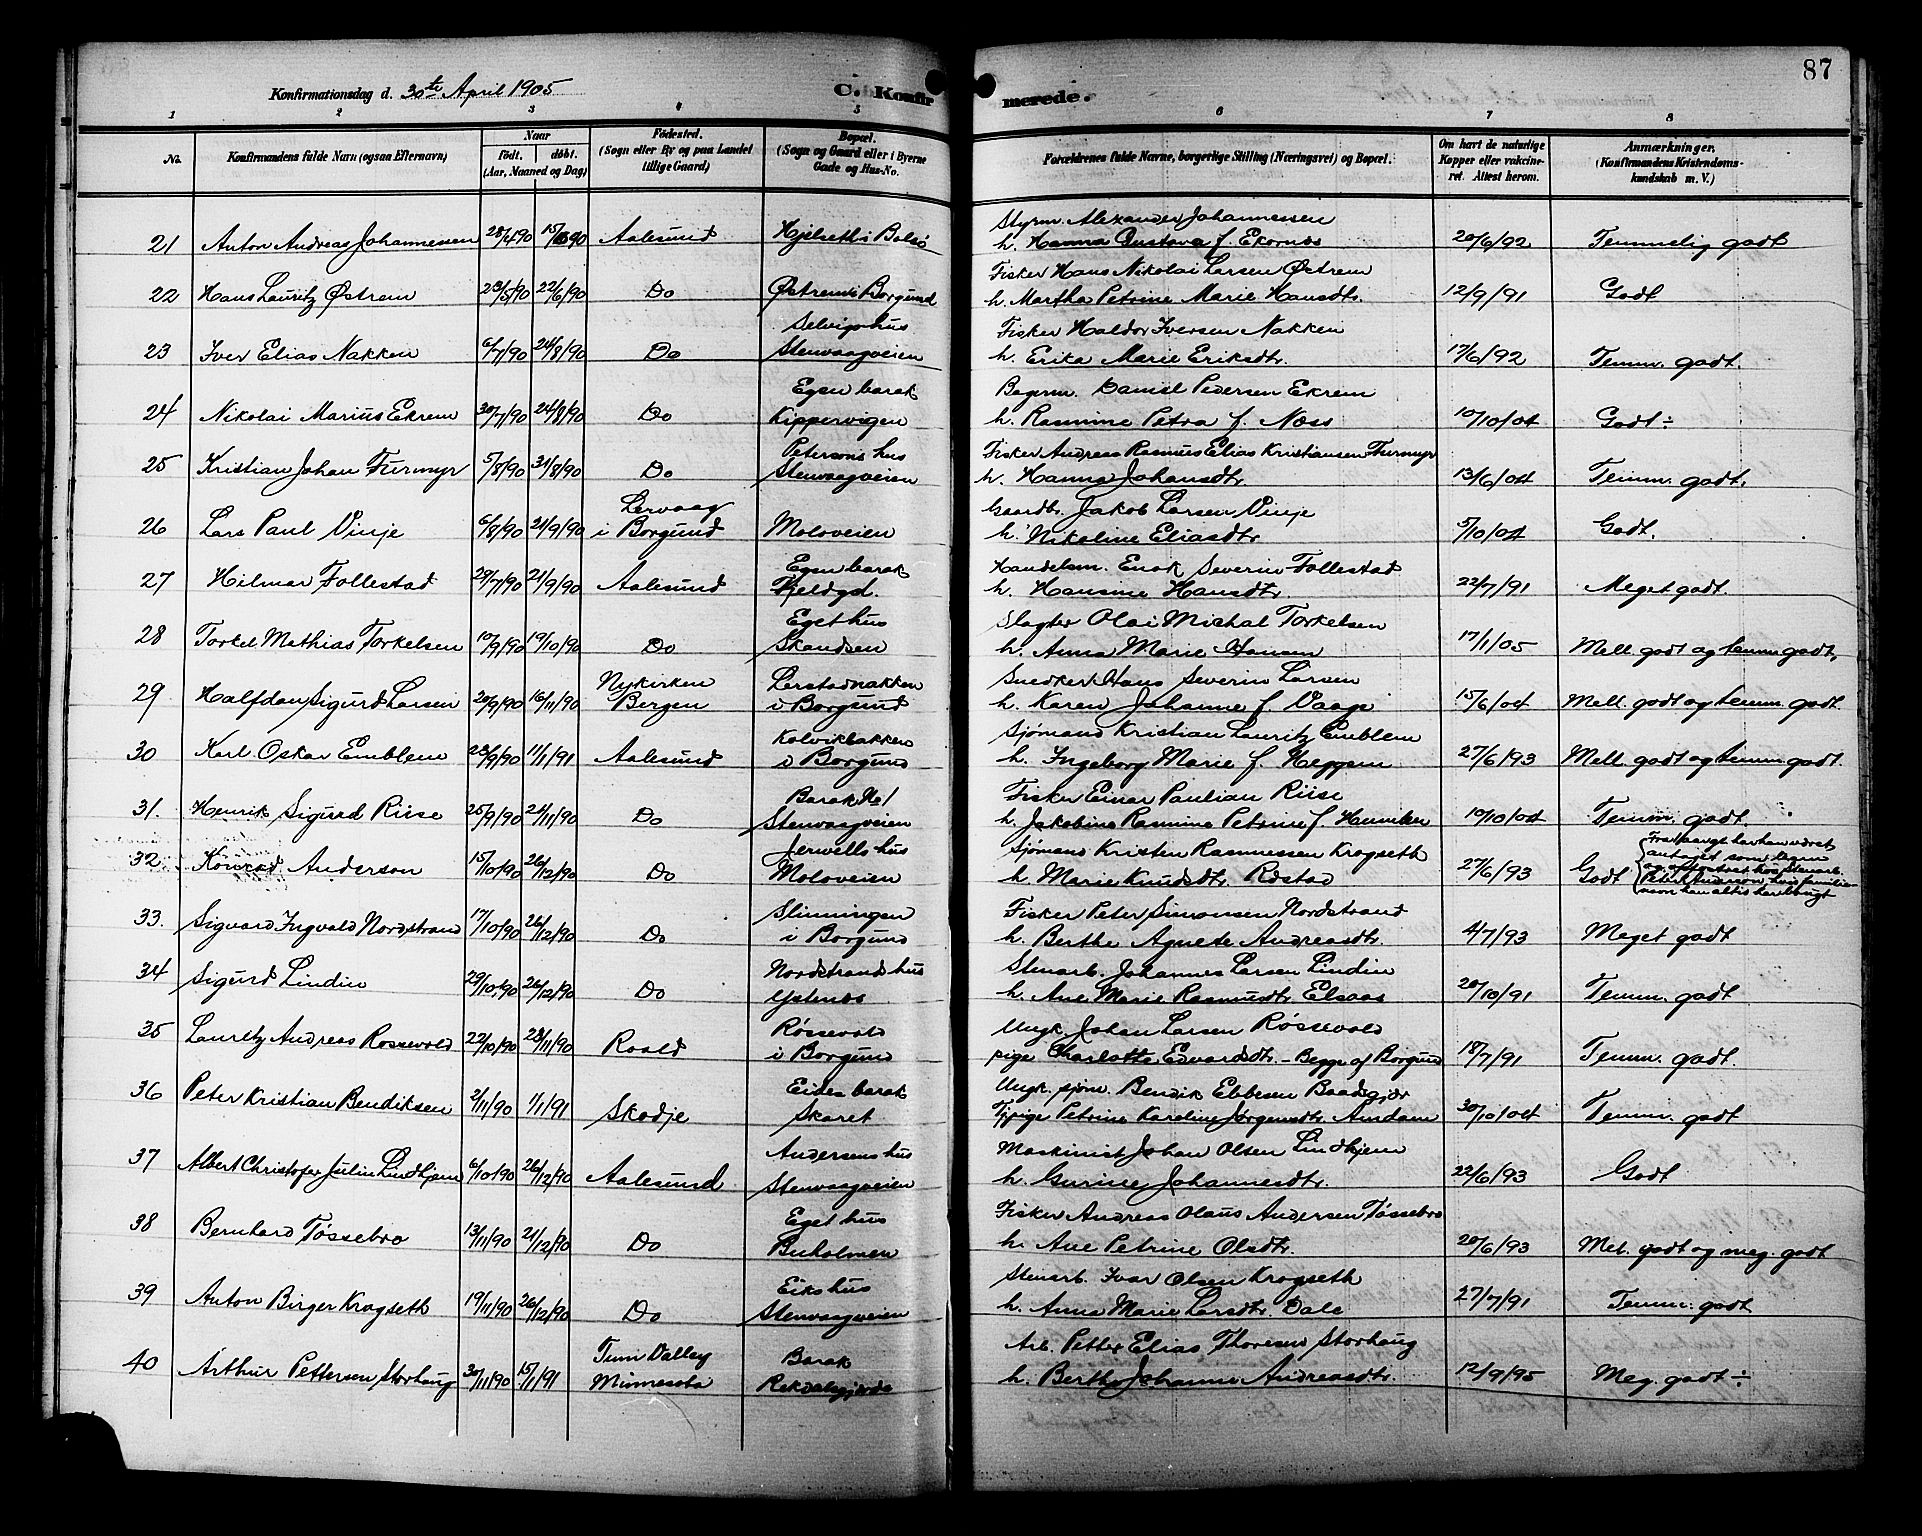 87
Konfirmationsdag d. 30te April 1905
C. Konfirmerede.
1 2 3 4 5 6 7 8
No.
Konfirmandens fulde Navn (ogsaa Efternavn)
Naar
født. døbt.
(Aar, Maaned og Dag)
Fødested.
(Sogn eller By og paa Landet
tillige Gaard)
Bopæl.
(Sogn og Gaard eller i Byerne
Gade og Hus-No.
Forældrenes fulde Navne, borgerlige Stilling (Næringsvei) og Bopæl.
Om havt de naturlige
Kopper eller vakcine-
ret. Attest herom.
Anmærkninger.
(Konfirmandens Kristendoms-
kundskab m. V.)
Styrm. Alexander Johannessen
21 Anton Andreas Johannessen 28/4 90 Aalesund Hjelseth i Bolsö h. Hanna Gustava f. Ekornes 20/6/92 Temmelig godt
Fisker Hans Nikolai Larsen Østrem
22 Hans Lauritz Østrem 23/5/90 22/6/90 Do Østrem i Borgund h. Martha Petrine Marie Hansdtr. 12/9/91 Godt
Selvigs hus Fisker Haldor Iversen Nakken
23 Iver Elias Nakken 6/7/90 24/8/90 Do Stenvaagveien h. Erika Marie Eriksdtr. 17/6/92 Temm. godt.
Egen barak Bagerm. Daniel Pedersen Ekrem
24 Nikolai Marius Ekrem 30/7/90 24/8/90 Do Kippervigen h. Rasmine Petra f. Næss 10/10/04 Godt ÷
Petersens hus Fisker Andreas Rasmus Elias Kristiansen Furmyr
25 Kristian Johan Furmyr 5/8/90 31/8/90 Do Stenvaagveien h. Hanna Johansdtr. 13/6/04 Temm. godt.
Lervaag Gaardbr. Jakob Larsen Vinje
26 Lars Paul Vinje 6/8/90 21/9/90 i Borgund Moloveien h. Nikoline Eliasdtr 5/10/04 Godt.
Egen barak Handelsm. Enok Severin Follestad
27 Hilmar Follestad 29/7/90 21/9/90 Aalesund Fjeldgd. h. Hansine Hansdtr. 22/7/91 Meget godt.
Eget hus Slagter Olai Michal Torkelsen
28 Torkel Mathias Torkelsen 10/9/90 19/10/90 Do Skandsen h. Anna Marie Hansen 17/1/05 Mell. godt og temm. godt.
Nykirken Lerstadnakken Snedker Hans Severin Larsen
29 Halfdan Sigurd Larsen 20/9/90 16/11/90 Bergen i Borgund h. Karen Johanne f. Vaage 15/6/04 Mell. godt og temm. godt.
Kolvikbakken Sjømand Kristian Lauritz Emblem
30 Karl Oskar Emblem 23/9/90 11/1/91 Aalesund i Borgund h. Ingeborg Marie f. Heggem 27/6/93 Mell. godt og temm. godt.
Barak No 1 Fisker Einar Paulian Riise
31. Henrik Sigurd Riise 25/9/90 24/11/90 Do Stenvaagveien h. Jakobine Rasmine Petrine f. 10/10/04 Temm. godt.
Jervells hus Sjømand Kristen Rasmussen Krogseth
32 Konrad Anderson 15/10/90 26/12/90 Do Moloveien h. Marie Knudsdtr. Röstad 27/6/93 Godt
{ Fra spæd har han været
antaget som egen
og opfostret hos Stenarb.
Peter Anderson, hvis familie-
navn han altid har brugt
Slinningen Fisker Peter Simonsen Nordstrand
33. Sigvard Ingvald Nordstrand 17/10/90 26/12/90 Do i Borgund h. Berthe Agnete Andreasdtr. 4/7/93 Meget godt
Nordstrands hus Stenarb. Johannes Larsen Lindin
34 Sigurd Lindin 29/10/90 26/12/90 Do Ystenes h. Ane Marie Rasmusdtr. Elsaas 20/10/91 Temm. godt
Røssevold Ungk. Johan Larsen Røssevold
35 Lauritz Andreas Rossevold 22/10/90 23/11/90 Roald i Borgund pige Charlotte Edvardsdtr. - Begge af Borgund 18/7/91 Temm. godt.
Eides barak Ungk. sjøm. Bendik Ebbesen Baadsgjær
36 Peter Kristian Bendiksen 2/11/90 1/1/91 Skodje Skaret Tjpige Petrine Karoline Jørgensdtr. Amdam 30/10/04 Temm. godt
Andersens hus Maskinist Johan Olsen Lindhjem
37 Albert Christofer Julin Lindhjem 6/10/90 26/12/90 Aalesund Stenvaagveien h. Gurine Johannesdtr. 22/6/93 Godt
Eget hus Fisker Andreas Olaus Andersen Tøssebro
38 Bernhard Tøssebro 13/11/90 21/12/90 Do Buholmen h. Ane Petrine Olsdtr. 20/6/93 Mel. godt og meg. godt
Eiks hus Stenarb. Ivar Olsen Krogseth
39 Anton Birger Krogseth 19/11/90 26/12/90 Do Stenvaagveien h. Anna Marie Larsdtr. Dale 27/7/91 Temm. godt
Tuin Valley Barak Arb. Petter Elias Thoresen Storhaug
40 Arthur Pettersen Storhaug 30/11/90 15/1/91 Minnesota Rekdalsgjerde h. Berthe Johanne Andreasdtr. 12/9/95 Meg. godt ÷